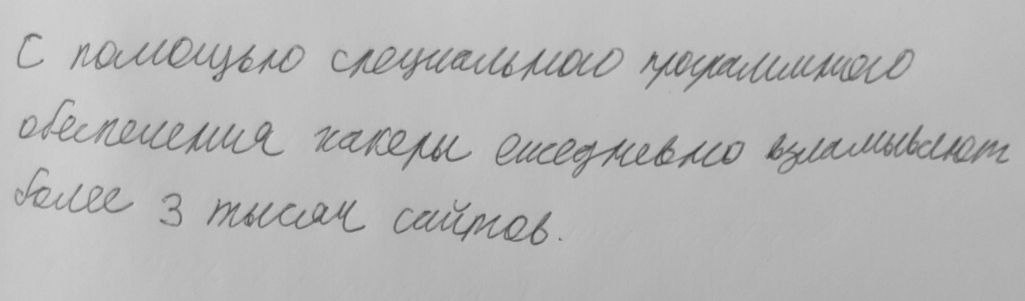 С помощью специального программного
обеспечения хакеры ежедневно взламывают
более 3 тысяч сайтов.